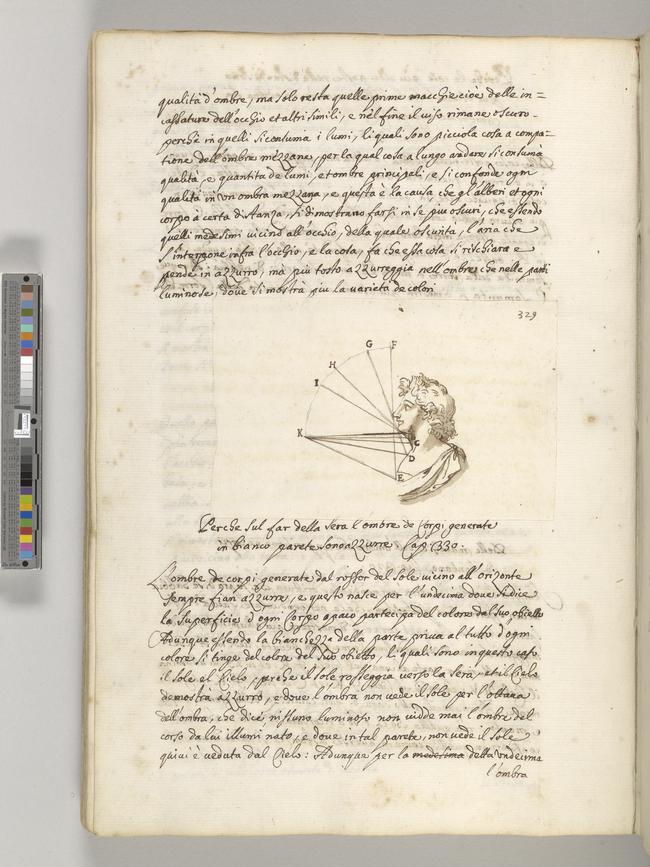 qualità d'ombre, ma solo resta quelle prime macchie cioè delle in=
cassature dell'occhio et altri simili, e nel fine il viso rimane oscuro
perche in quelli si consuma i lumi, li quali sono picciola cosa a compa=
tione dell'ombre mezzane, per la qual cosa a lungo andare si consuma
qualità, e quantità de lumi, et ombre principali, e si confonde ogni
qualità in un ombra mezzana, e questa è la causa, che gl'alberi et ogni
corpo à certa distanza, si dimostrano farsi in se piu oscuri, che essendo
quelli medesimi vicino all'occhio, della quale oscurità, l'aria che
s'interpone infra l'occhio, e la cosa, fa che essa cosa si rischiara e
pende in azzurro, mà piu tosto azzurreggia nell'ombre che nelle parti
luminose, dove si mostrà piu la varietà de colori
329
G F
H
I
K
C
D
E
Perche sul far della sera l'ombre de Corpi generate
in bianco parete sono azzurre. Cap. 330.
L'ombre de corpi generate dal rossor del sole vicino all'orizonte
sempre fian azzurre, e questo nasce per l'undecima dove si dice
la superficie d'ogni Corpo opaco partecipa del colore dal suo obietto
Adunque essendo la bianchezza della parete priva al tutto d'ogni
colore si tinge del colore del suo obietto, li quali sono in questo caso
il sole et Cielo, perche il sole rosseggia verso la sera, et il Cielo
demostra azzurro, e dove l'ombra non vede il sole per l'ottava
dell'ombra, che dice nissuno luminoso non vidde mai l'ombre del
corpo da lui illuminato, e dove in tal parete, non vede il sole
quivi è veduta dal Cielo: Adunque per la medesima della undecima
l'ombra